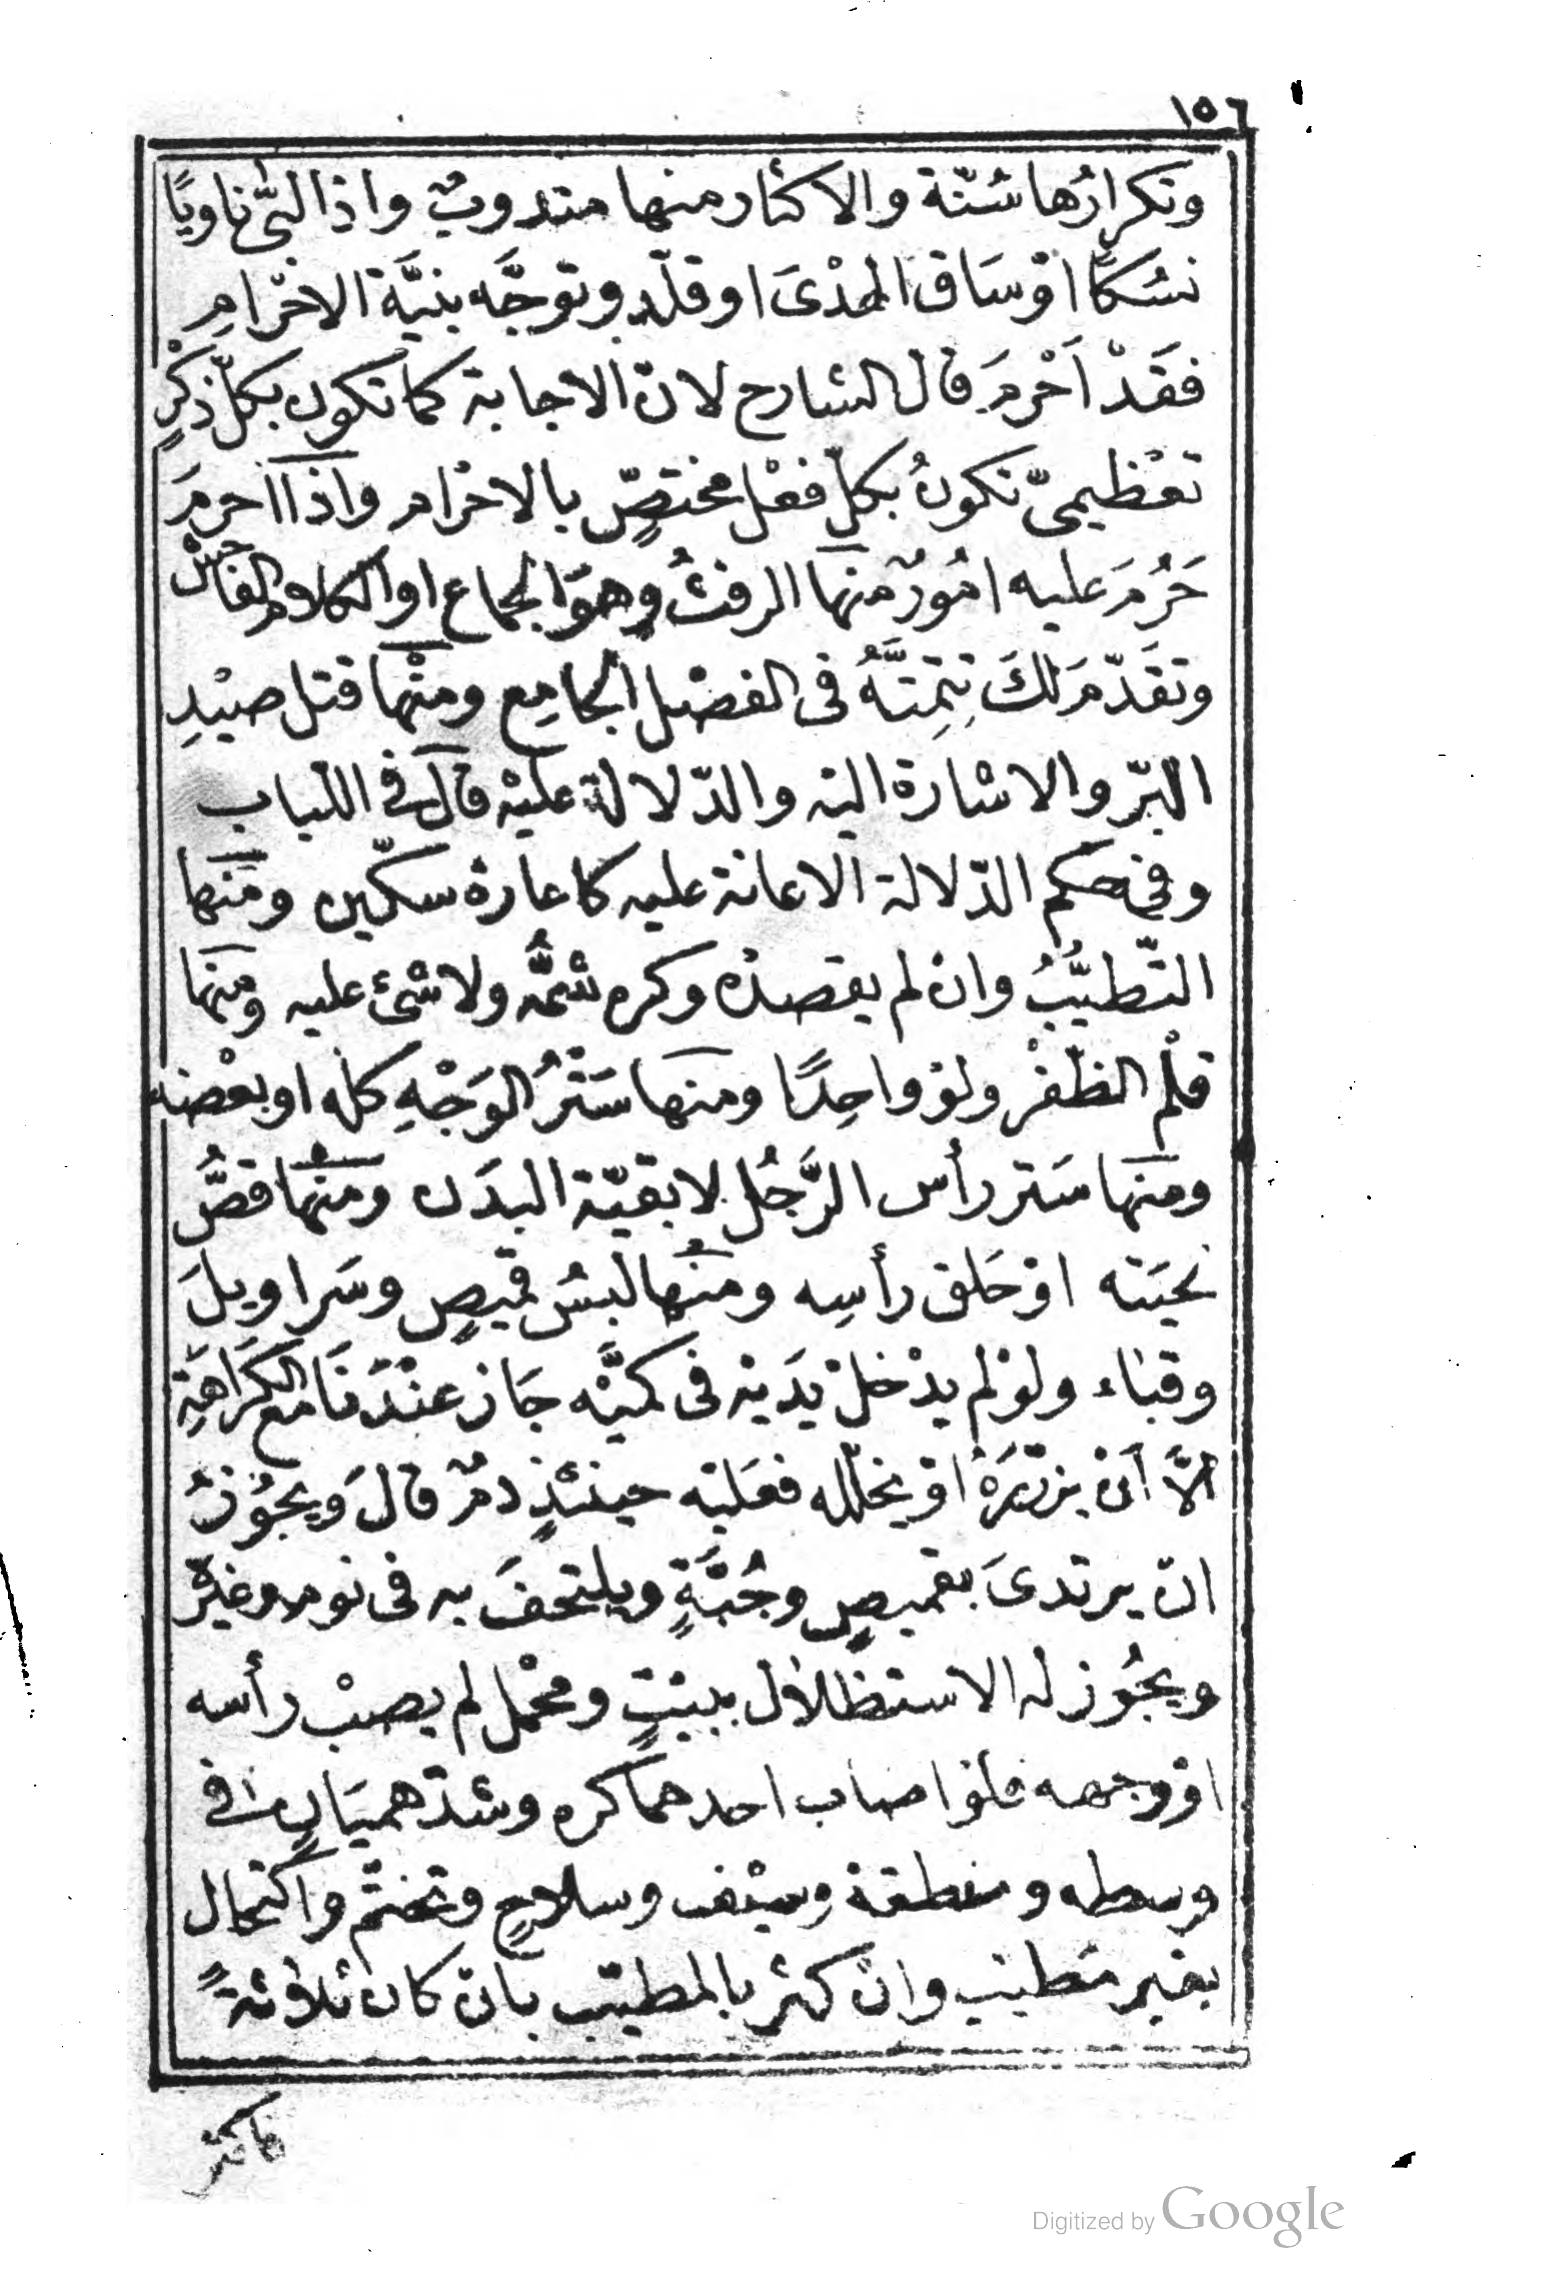 ١٥٦
وتكرارُها سُنّة والاكثار منها مندوبٌ واذا لبّى ناويًا
نسُكًا اوْ سَاق الهدْىَ او قلّد وتوجَّه بنيَّة الاحْرامِ
فقَدْ اَحْرمَ قال الشارح لانّ الاجابة كما تكون بكلّ ذكْرٍ
تعْظيمىّ تكونُ بكلّ فعْل مختصٍّ بالاحْرام واذا احرمَ
حَرُمَ عليه امُورٌ منها الرفثُ وهوَ الجماع او الكلام الفاحش
وتقَدّمَ لكَ تتِمَّتهُ فى الفصْل الجامِع ومنْها قتل صيْدِ
البَرّ والاشارة اليْه والدّلالة عليْه قال فى اللّباب
وفى حكم الدّلالة الاعانة عليه كاعارة سكّين ومنها
التّطيُّبُ وانْ لم يقصدْه وكره شمُّه ولا شْئ عليه ومنها
قلْم الظّفْر ولوْ واحِدًا ومنها سَتْرُ الوَجْهِ كله او بعْضه
ومنها سَتر رأس الرَّجُل لا بقيّة البدَن ومنها قصُّ
لحيَته اوْ حَلق رأسِه ومنْها لبسُ قميصٍ وسَراويلَ
وقباء ولوْ لم يدْخلْ يدَيْه فى كميَّه جَاز عنْدَنَا مع الكَرَاهَةِ
الّا اَنْ يزرّرَهُ اوْ يخلّله فعَليْه حينئذٍ دمٌ قالَ ويجُوْزُ
انْ يرتدىَ بقميصٍ وجُبَّةٍ ويلتحفَ به فى نوم وغيْره
ويجُوز له الاستظلال ببيْتٍ ومحْمل لم يصبْ رأسه
اوْ وجهه فلوْ اصاب احدهما كره وشدّ هميَانٍ فى
وسطه ومنطقة وسيْف وسلاحٍ وتختّم واكتحال
بغير مُطيّب وانْ كثر بالمطيّب بانْ كان ثلاثةً
فاكثر
Digitized by Google